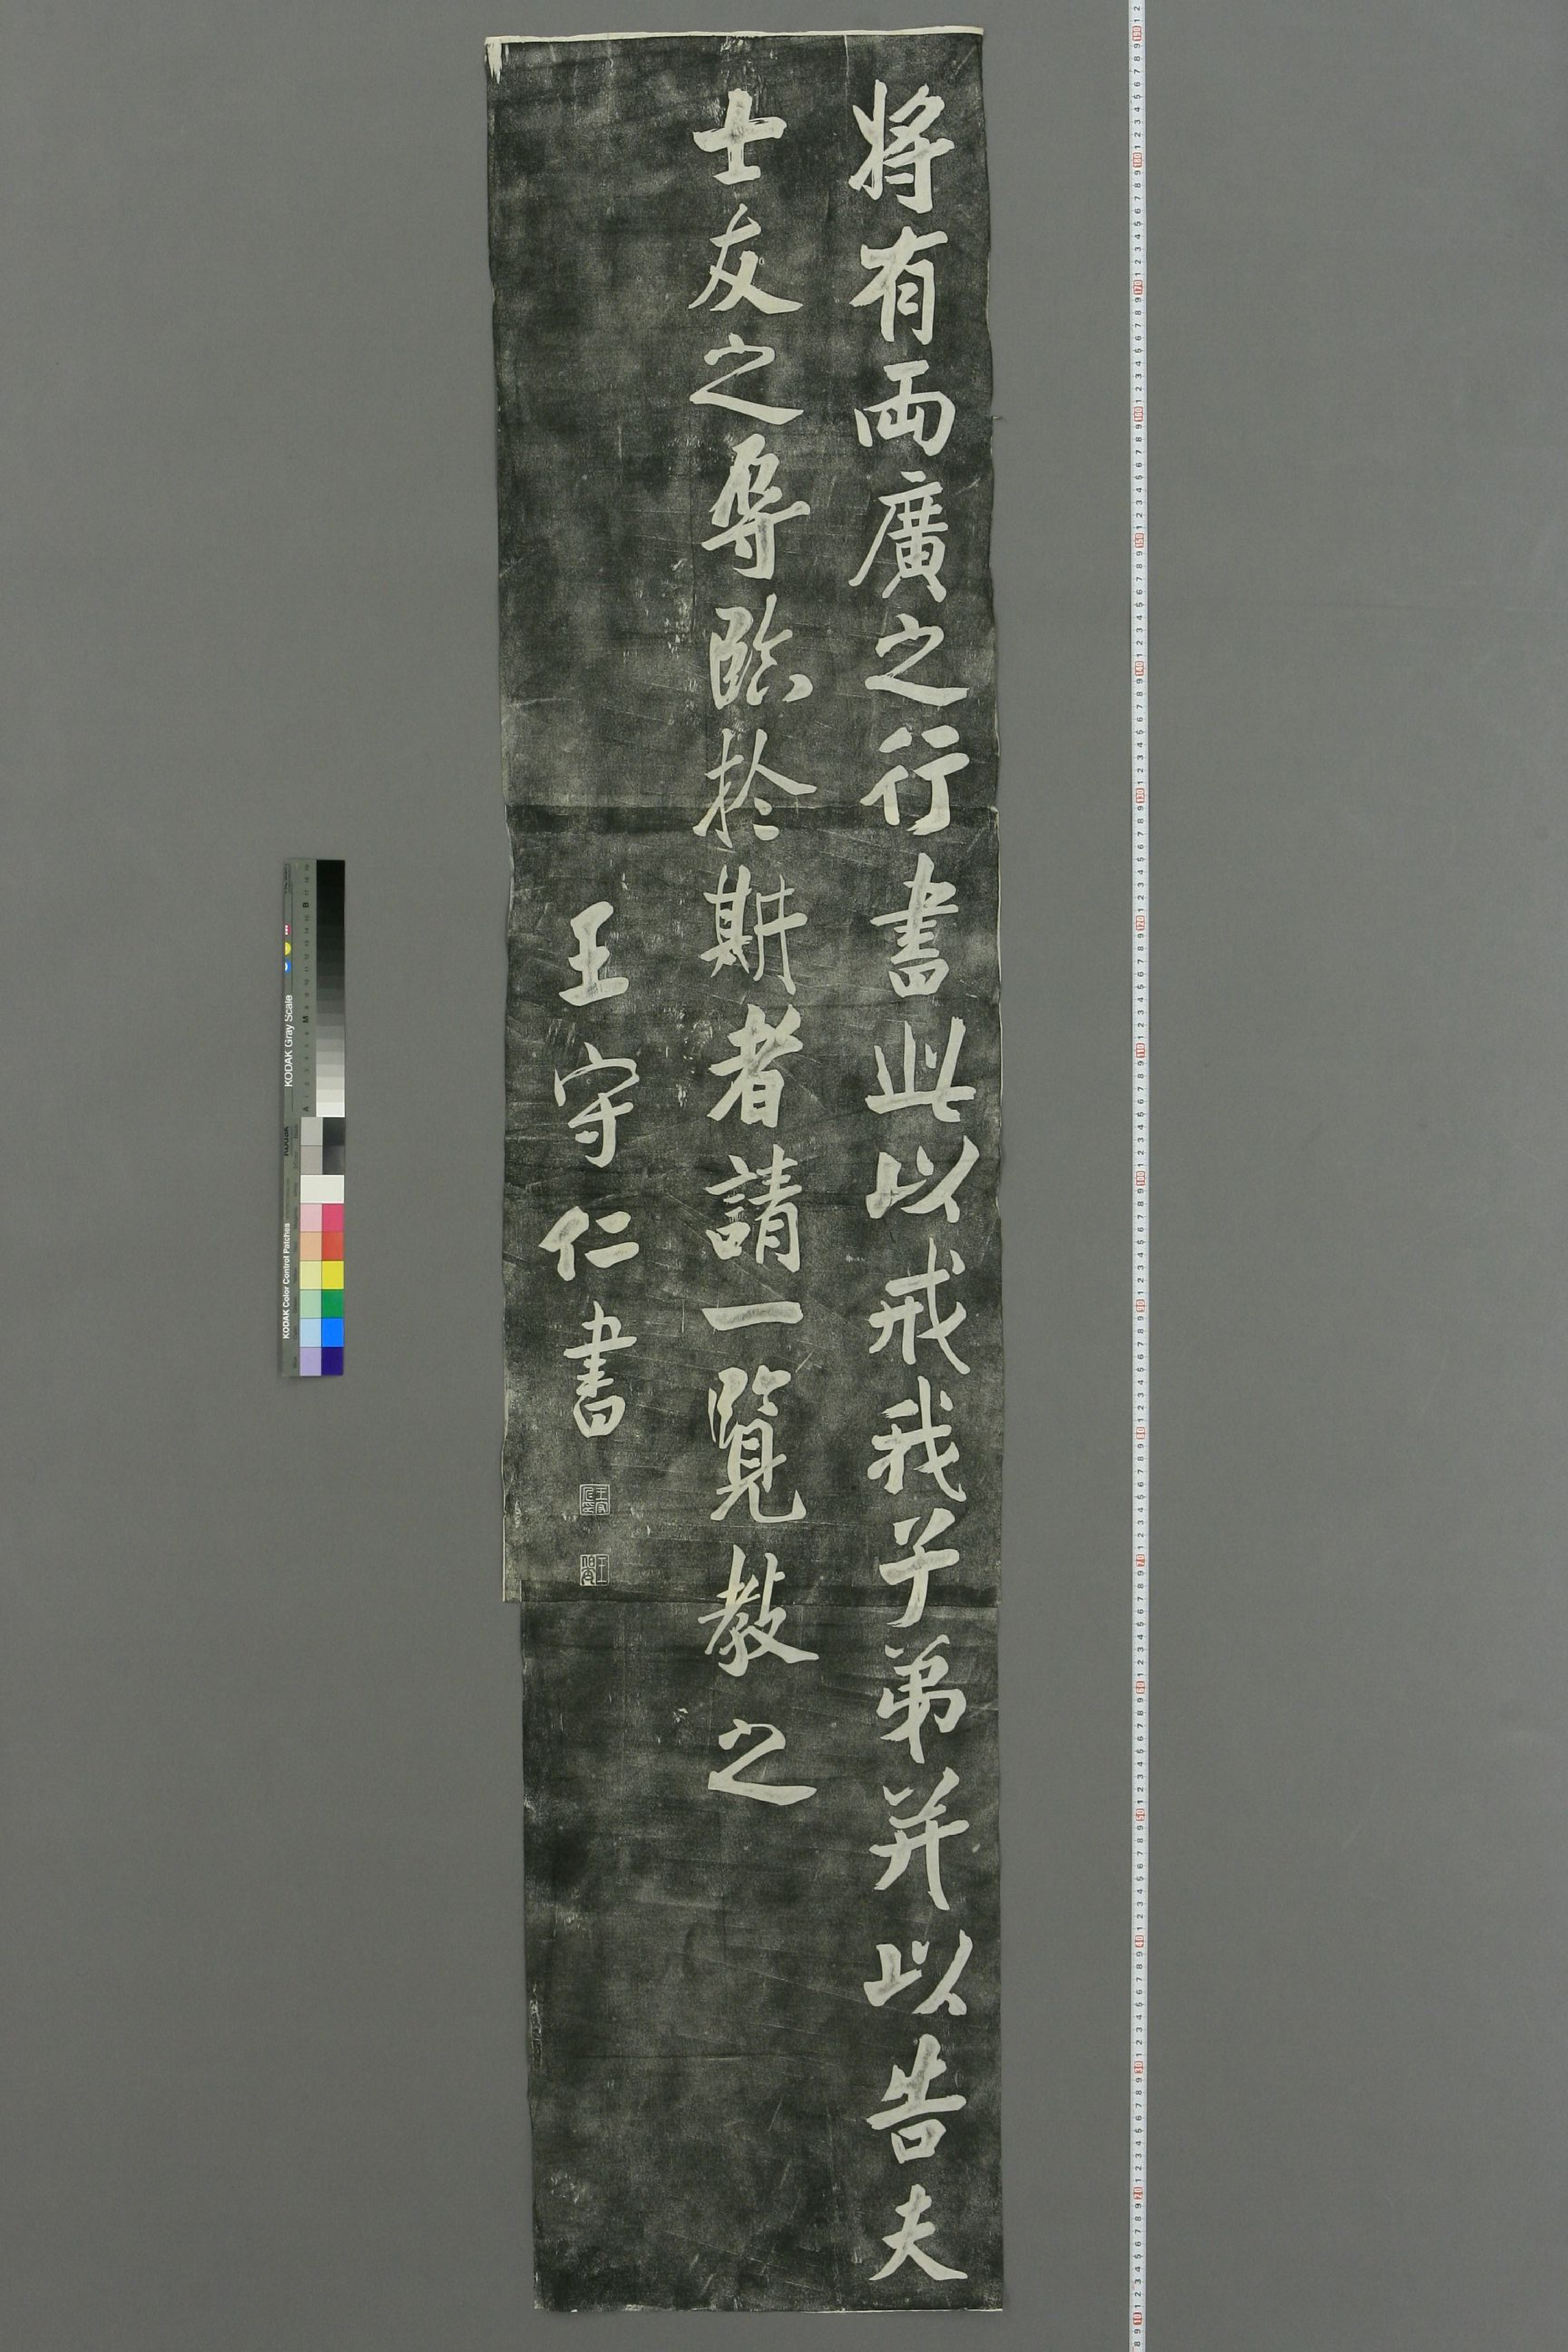 将有兩廣之行書此以戒我子弟并以告夫
士友之辱臨於斯者請一覽教之
王守仁書
KODAK Gray Scale
KODAK Color Control Patches